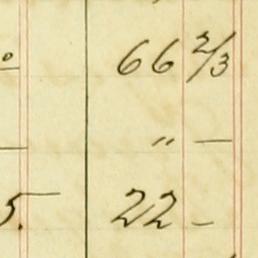 o 66 2/3
— " —
5. 22 –